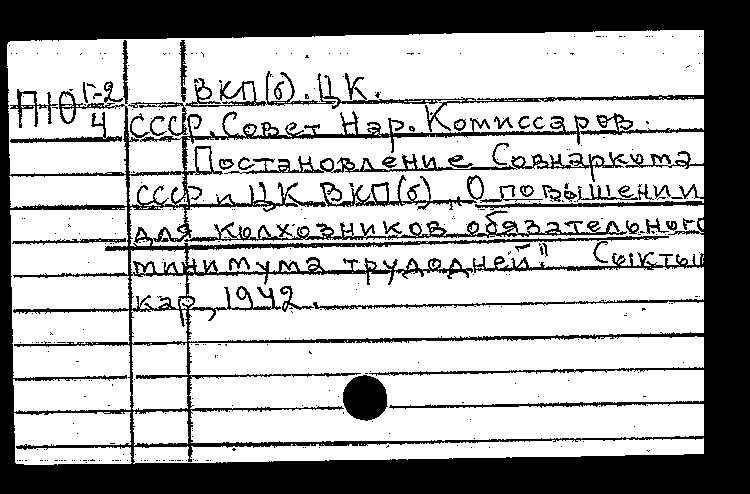 П10 Г-2 ВКП(б). ЦК.
4 СССР. Совет Нар. Комиссаров.
Постановление Совнаркома
СССР и ЦК ВКП(б) „О повышении
для колхозников обязательного
минимума трудодней". Сыктыв
кар, 1942.